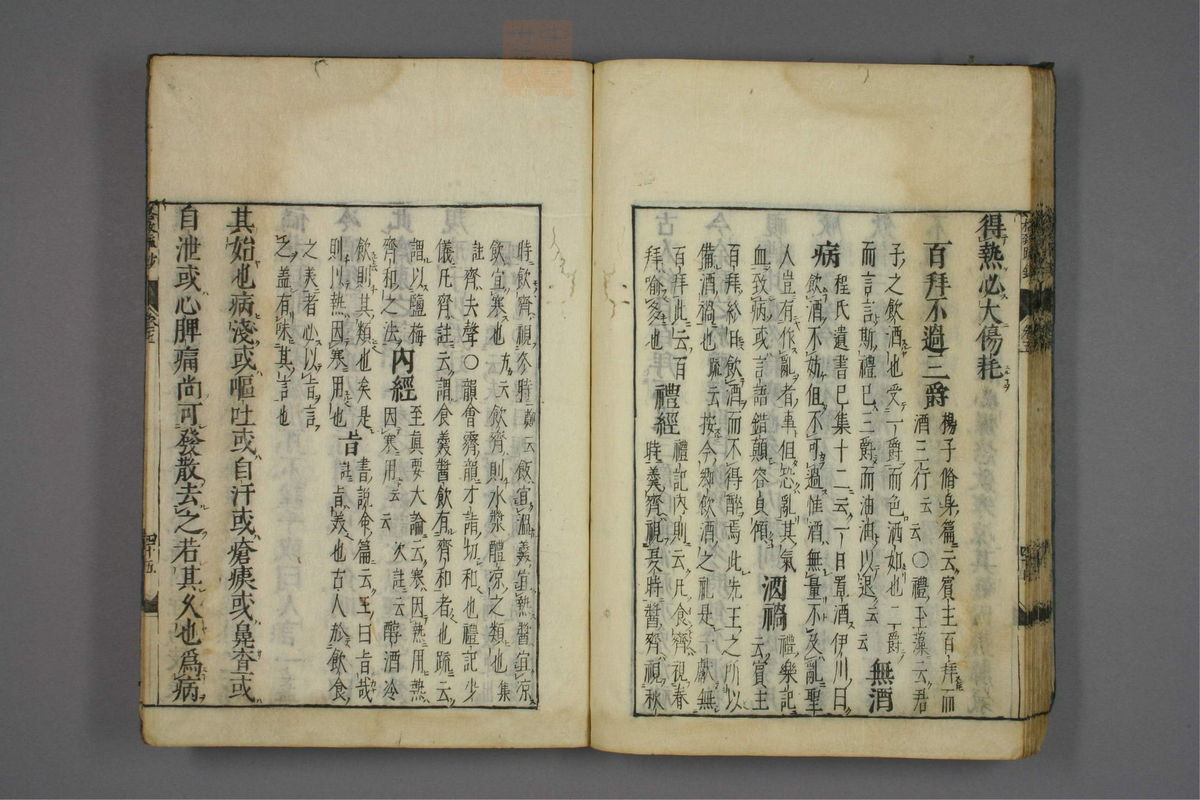 得熱必大傷耗
百拜不過三爵 楊子脩身篇云賓主百拜而
酒三行云云〇禮玉藻云君
子之飲酒也受一爵而色洒如也二爵
而言言斯禮已三爵而油油以退云云 無酒
病 程氏遺書巳集十二云一日置酒伊川曰
飲酒不妨但不可過惟酒無量不及亂聖
人豈有作亂者事但恐亂其氣
血致病或言語錯顛容貞傾 酒禍 禮樂記
云賓主
百拜終日飲酒而不得醉焉此先王之所以
備酒禍也 疏云按今鄉飲酒之礼是一獻無
百拜此云百
拜喻多也 禮經 禮記內則云凡食齊視春
時羹齊視夏時醬齊視秋
時飲齊視冬時 鄭云飯宜溫羹宜熱醬宜涼
飲宜寒也 方云飲齊則水漿醴涼之類也 集
註 齊去聲〇韻會齊龍才諸切和也禮記少
儀凡齊註云謂食羹醬飲有齊和者也疏云
謂以鹽梅
齊和之法 內經 至眞要大論云寒因熱用熱
因寒用云云 次註云醇酒冷
飲則其類也矣是
則以熱因寒用也 旨 書說命篇云王曰旨哉
註旨美也古人於飲食
之美者必以旨言
之盖有味其言也
其始也病淺或嘔吐或自汗或瘡痍或鼻齇或
自泄或心脾痛尚可發散去之若其久也爲病